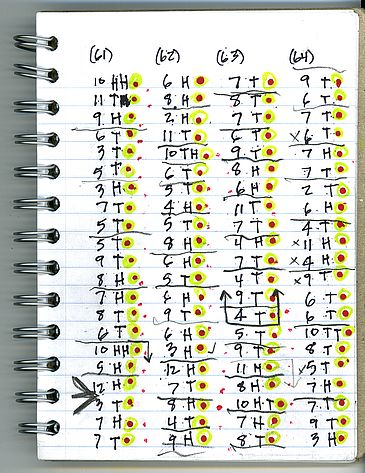 (61) (62) (63) (64)
10 HH 6 H 7 T 9 T
11 T 8 H 8 T 6 T
9 H 2 H 7 T 7 T
6 T 11 T 6 T x 6 T
3 T 10 TH 9 T 7 H
5 T 6 T 8 H 7 T
3 H 5 T 6 H 2 T
7 T 4 H 11 T 6 H
5 T 5 T 7 T 4 T
5 T 8 H 4 H x 11 H
9 T 6 H 7 T x 4 H
8 H 5 T 4 T x 9 T
7 H 6 H 9 T 6 T
8 T 9 T 4 T 6 T
6 T 6 H 5 T 10 TT
10 HH 3 H 9 T 8 T
5 H 12 H 11 H 5 T
12 H 7 T 8 H 7 H
3 T 8 H 10 HT 7 T
7 H 4 T 7 H 9 T
7 T 9 H 8 T 3 H